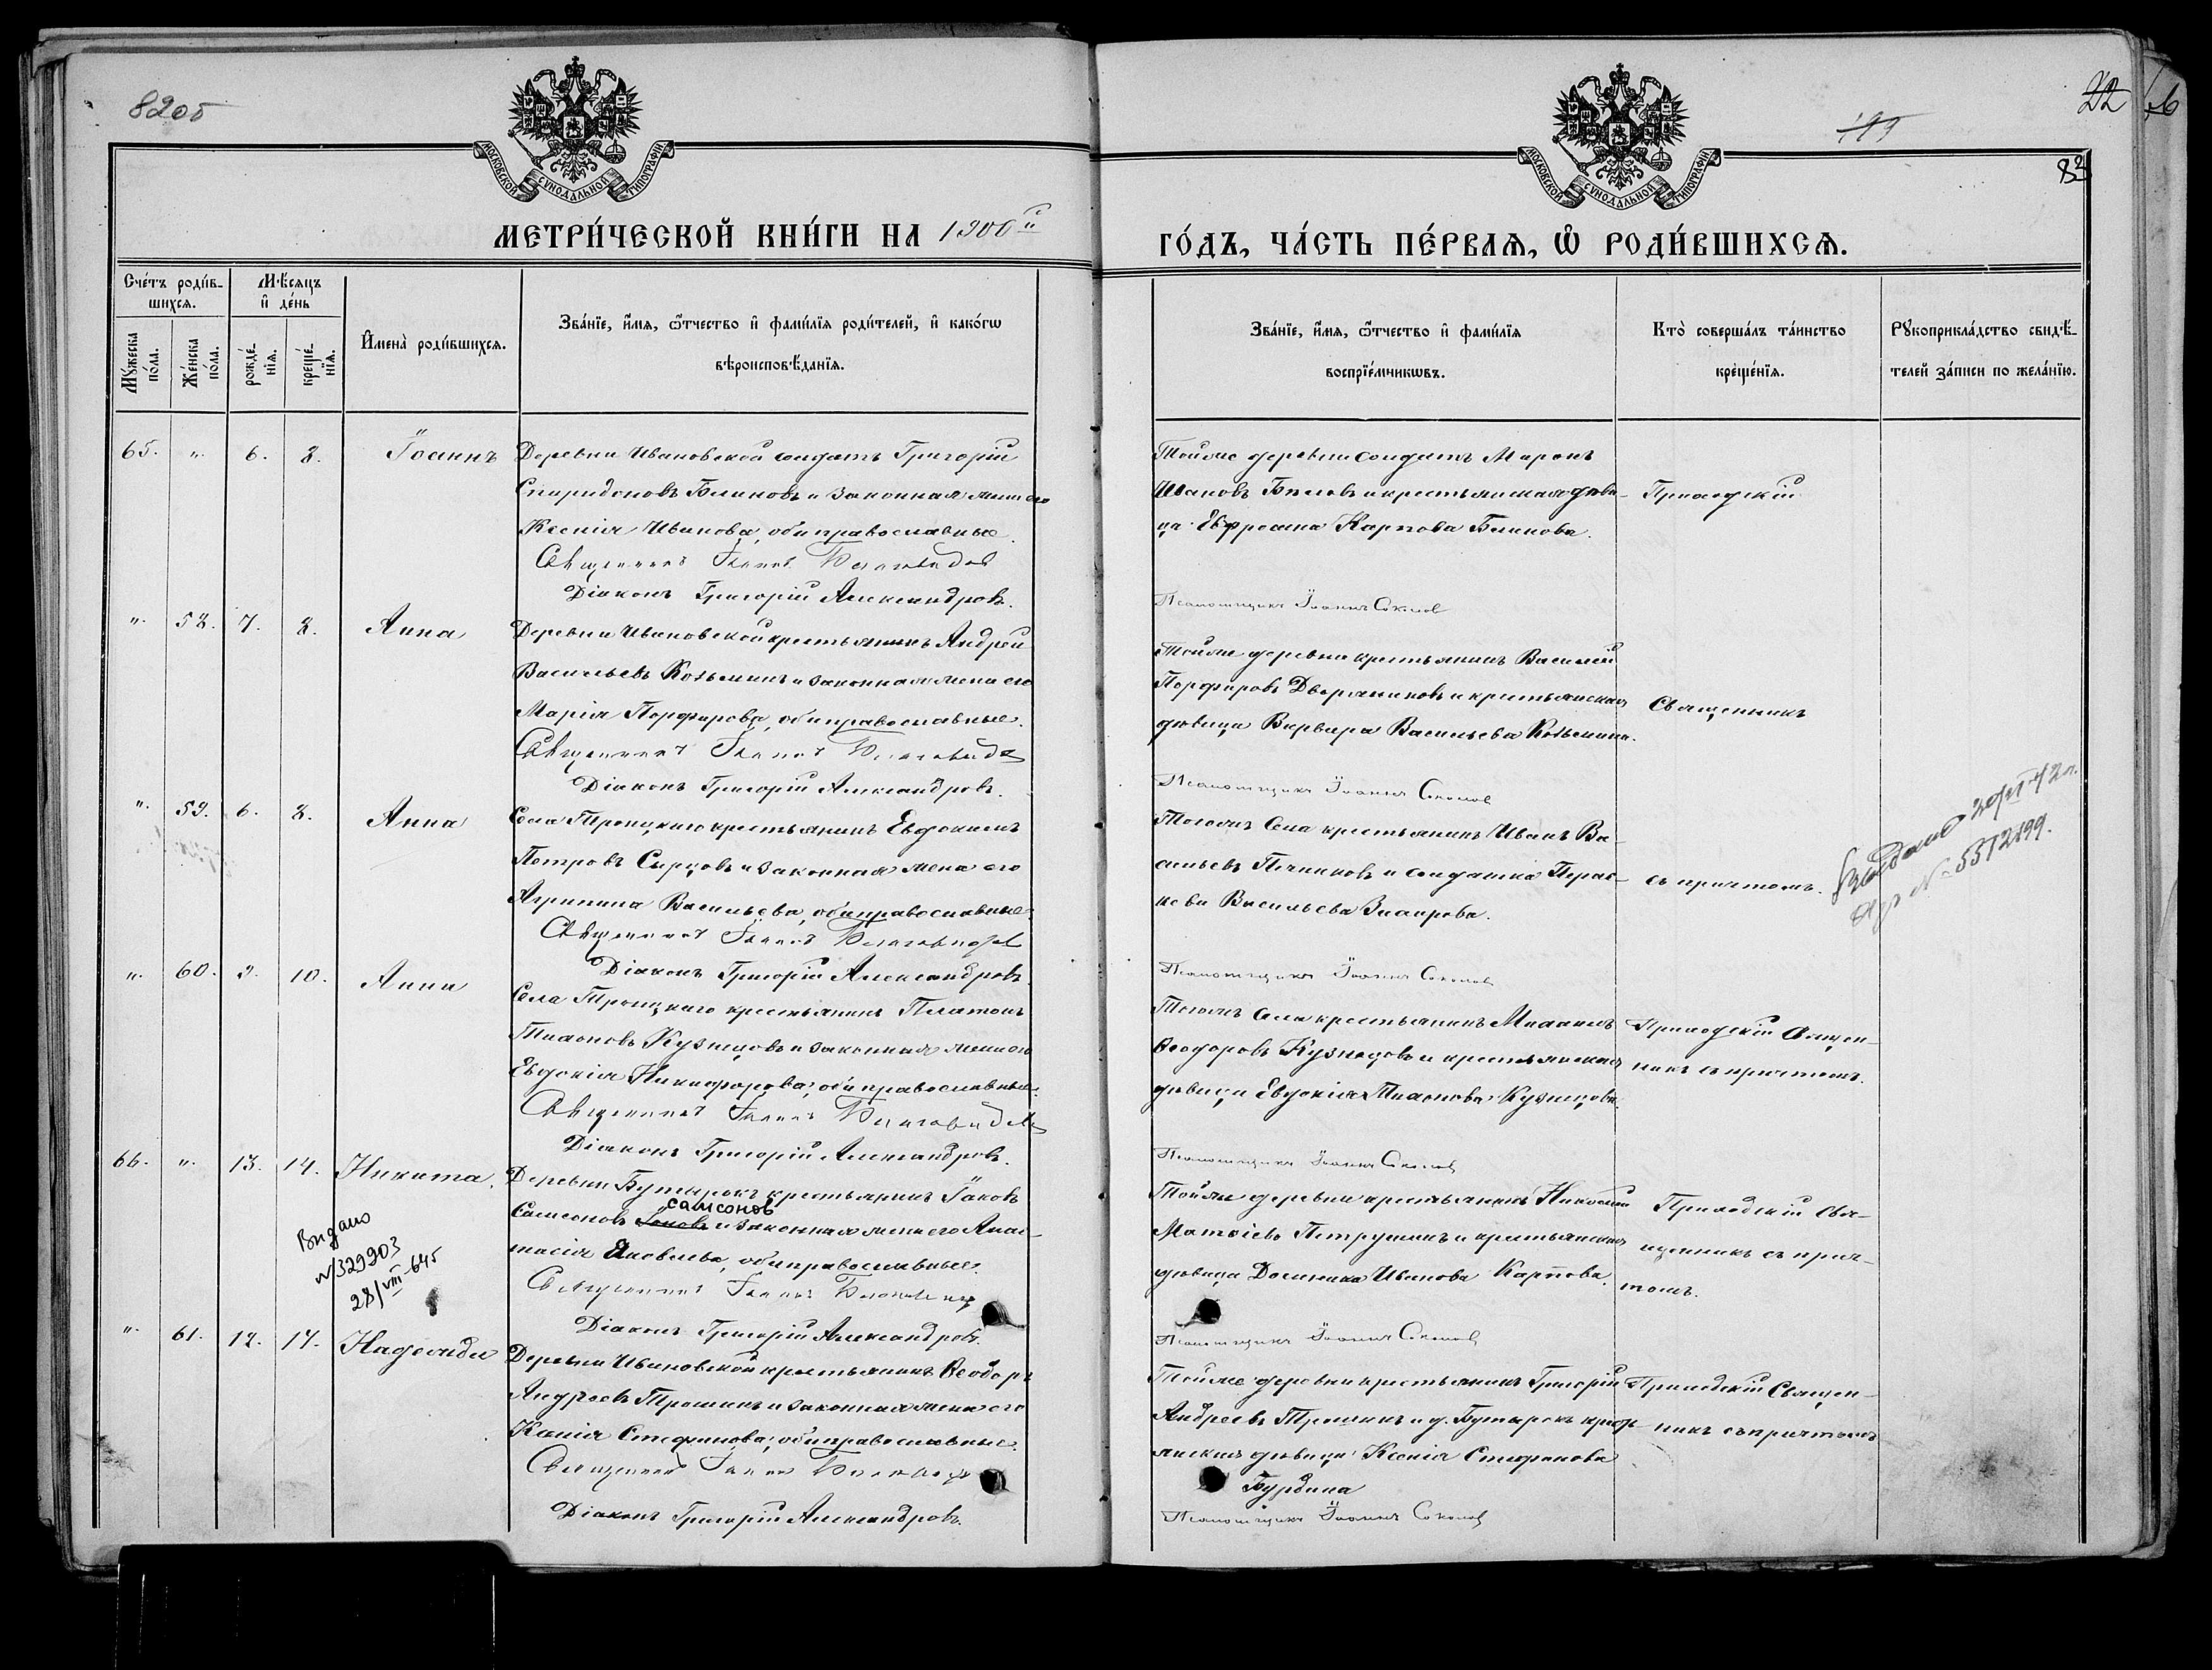 82об
22
83
МОСКОВСКОЙ СУНОДАЛЬНОЙ ТИПОГРАФІИ
МОСКОВСКОЙ СУНОДАЛЬНОЙ ТИПОГРАФІИ
МЕТРИ́ЧЕСКОЙ КНИ́ГИ НА 1900й
ГО́ДЪ, ЧА́СТЬ ПЕ́РВАѦ, Ѡ҆ РОДИ́ВШИХСѦ.
Сче́тъ роди́в-
шихсѧ.
Мѣ́сяцъ
и҆ де́нь
Мꙋ́жеска
по́ла.
Же́нска
по́ла.
рожде́-
нїѧ.
креще́-
нїѧ.
И҆мена̀ роди́вшихсѧ.
Зва́нїе, и҆́мѧ, ѻ҆́тчество и҆ фами́лїѧ роди́телей, и҆ како́гѡ
вѣроисповѣ́данїѧ.
Зва́нїе, и҆́мѧ, ѻ҆́тчество и҆ фами́лїѧ
воспрїе́мникѡвъ.
Кто̀ соверша́лъ та́инство
креще́нїѧ.
Рꙋкоприкла́дство свидѣ́-
телей за́писи по жела́нїю.
65. " 6. 8. Іоаннъ
Деревни Ивановской солдатъ Григорій
Спиридоновъ Блиновъ и законная жена его
Ксенія Иванова, оба православные.
Священникъ Іоаннъ
Діаконъ Григорій Александровъ.
Тойже деревни солдатъ Миронъ
Ивановъ Бѣловъ и крестьянская дѣви-
ца Евфросина Карпова Блинова.
Псаломщикъ Іоаннъ Соколов
Приходскій
" 58. 7. 8. Анна
Деревни Ивановской крестьянинъ Андрей
Васильевъ Козьминъ и законная жена его
Марія Порфирова, оба православные.
Священникъ Іоаннъ
Діаконъ Григорій Александровъ.
Тойже деревни крестьянинъ Василій
Порфировъ Дворяниновъ и крестьянская
дѣвица Варвара Васильева Козьмина.
Псаломщикъ Іоаннъ Соколов
Священникъ
" 59. 6. 8. Анна
Села Троицкаго крестьянинъ Евдокимъ
Петровъ Сырцовъ и законная жена его
Агрипина Васильева, оба православные.
Священникъ Іоаннъ
Діаконъ Григорій Александровъ.
Тогожъ села крестьянинъ Иванъ Ва-
сильевъ и солдатка Парас-
кева Васильева
Псаломщикъ Іоаннъ Соколов
съ причтомъ.
№ 5512199.
" 60. 9. 10. Анна
Села Троицкаго крестьянинъ Платонъ
Тихоновъ Кузнецовъ и законная жена его
Евдокія Никифорова, оба православные.
Священникъ Іоаннъ
Діаконъ Григорій Александровъ.
Тогожъ села крестьянинъ Михаилъ
Ѳеодоровъ Кузнецовъ и крестьянская
дѣвица Евдокія Тихонова Кузнецова.
Псаломщикъ Іоаннъ Соколов
Приходскій Священ-
никъ съ причтомъ.
66. " 13. 14. Никита.
Видано
№329203
28/VIII-645
Деревни Бутырокъ крестьянинъ Іаковъ
самсонов
Самсоновъ и законная жена его Анас-
тасія Яковлева, оба православные.
Священникъ Іоаннъ
Діаконъ Григорій Александровъ.
Тойже деревни крестьянинъ Николай
Матвіевъ Петрушинъ и крестьянская
дѣвица Домника Иванова Карпова.
Псаломщикъ Іоаннъ Соколов
Приходскій Свя-
щенникъ съ прич-
томъ.
" 61. 12. 14. Надежда
Деревни Ивановской крестьянинъ Ѳеодоръ
Андреевъ Трошинъ и законная жена его
Ксенія Стефанова, оба православные.
Священникъ Іоаннъ
Діаконъ Григорій Александровъ.
Тойже деревни крестьянинъ Григорій
Андреевъ Трошинъ и д. Бутырокъ кресть-
янская дѣвица Ксенія Стефанова
Бурдина
Псаломщикъ Іоаннъ Соколов
Приходскій Священ-
никъ съ причтомъ